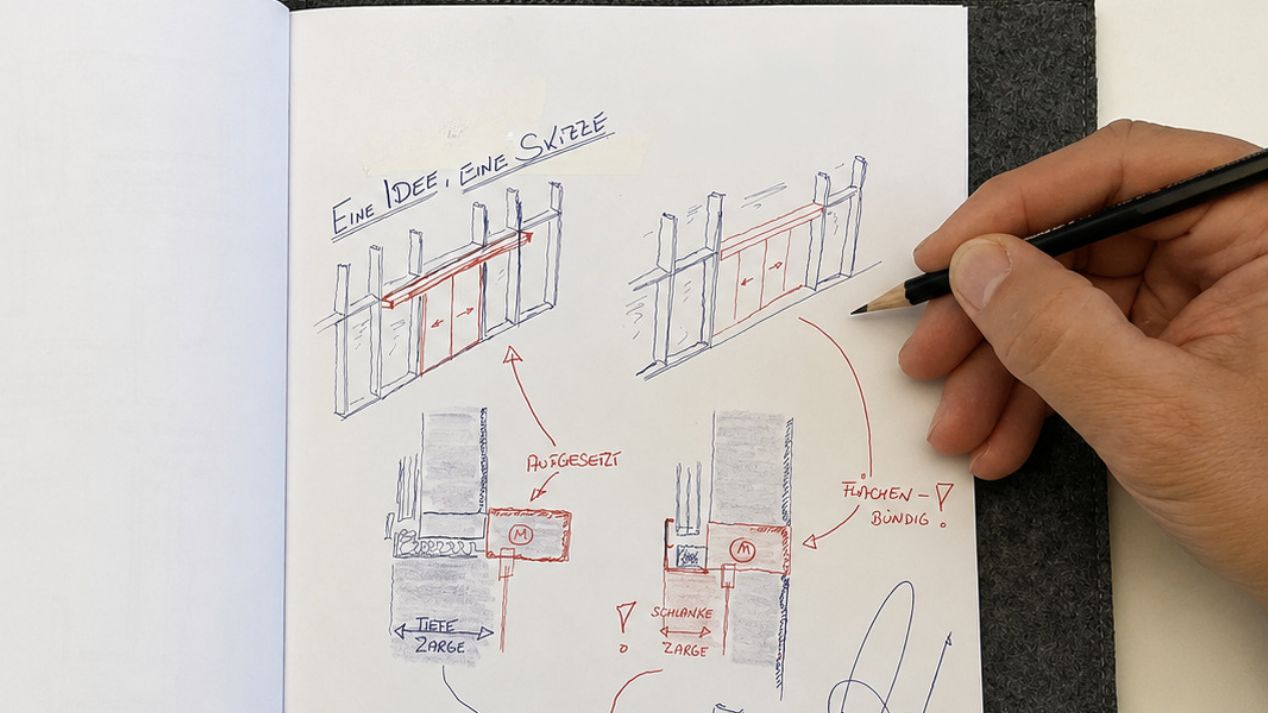 EINE IDEE, EINE SKIZZE
AUFGESETZT
FLÄCHEN-
BÜNDIG!
M
M
TIEFE
ZARGE
! SCHLANKE
ZARGE